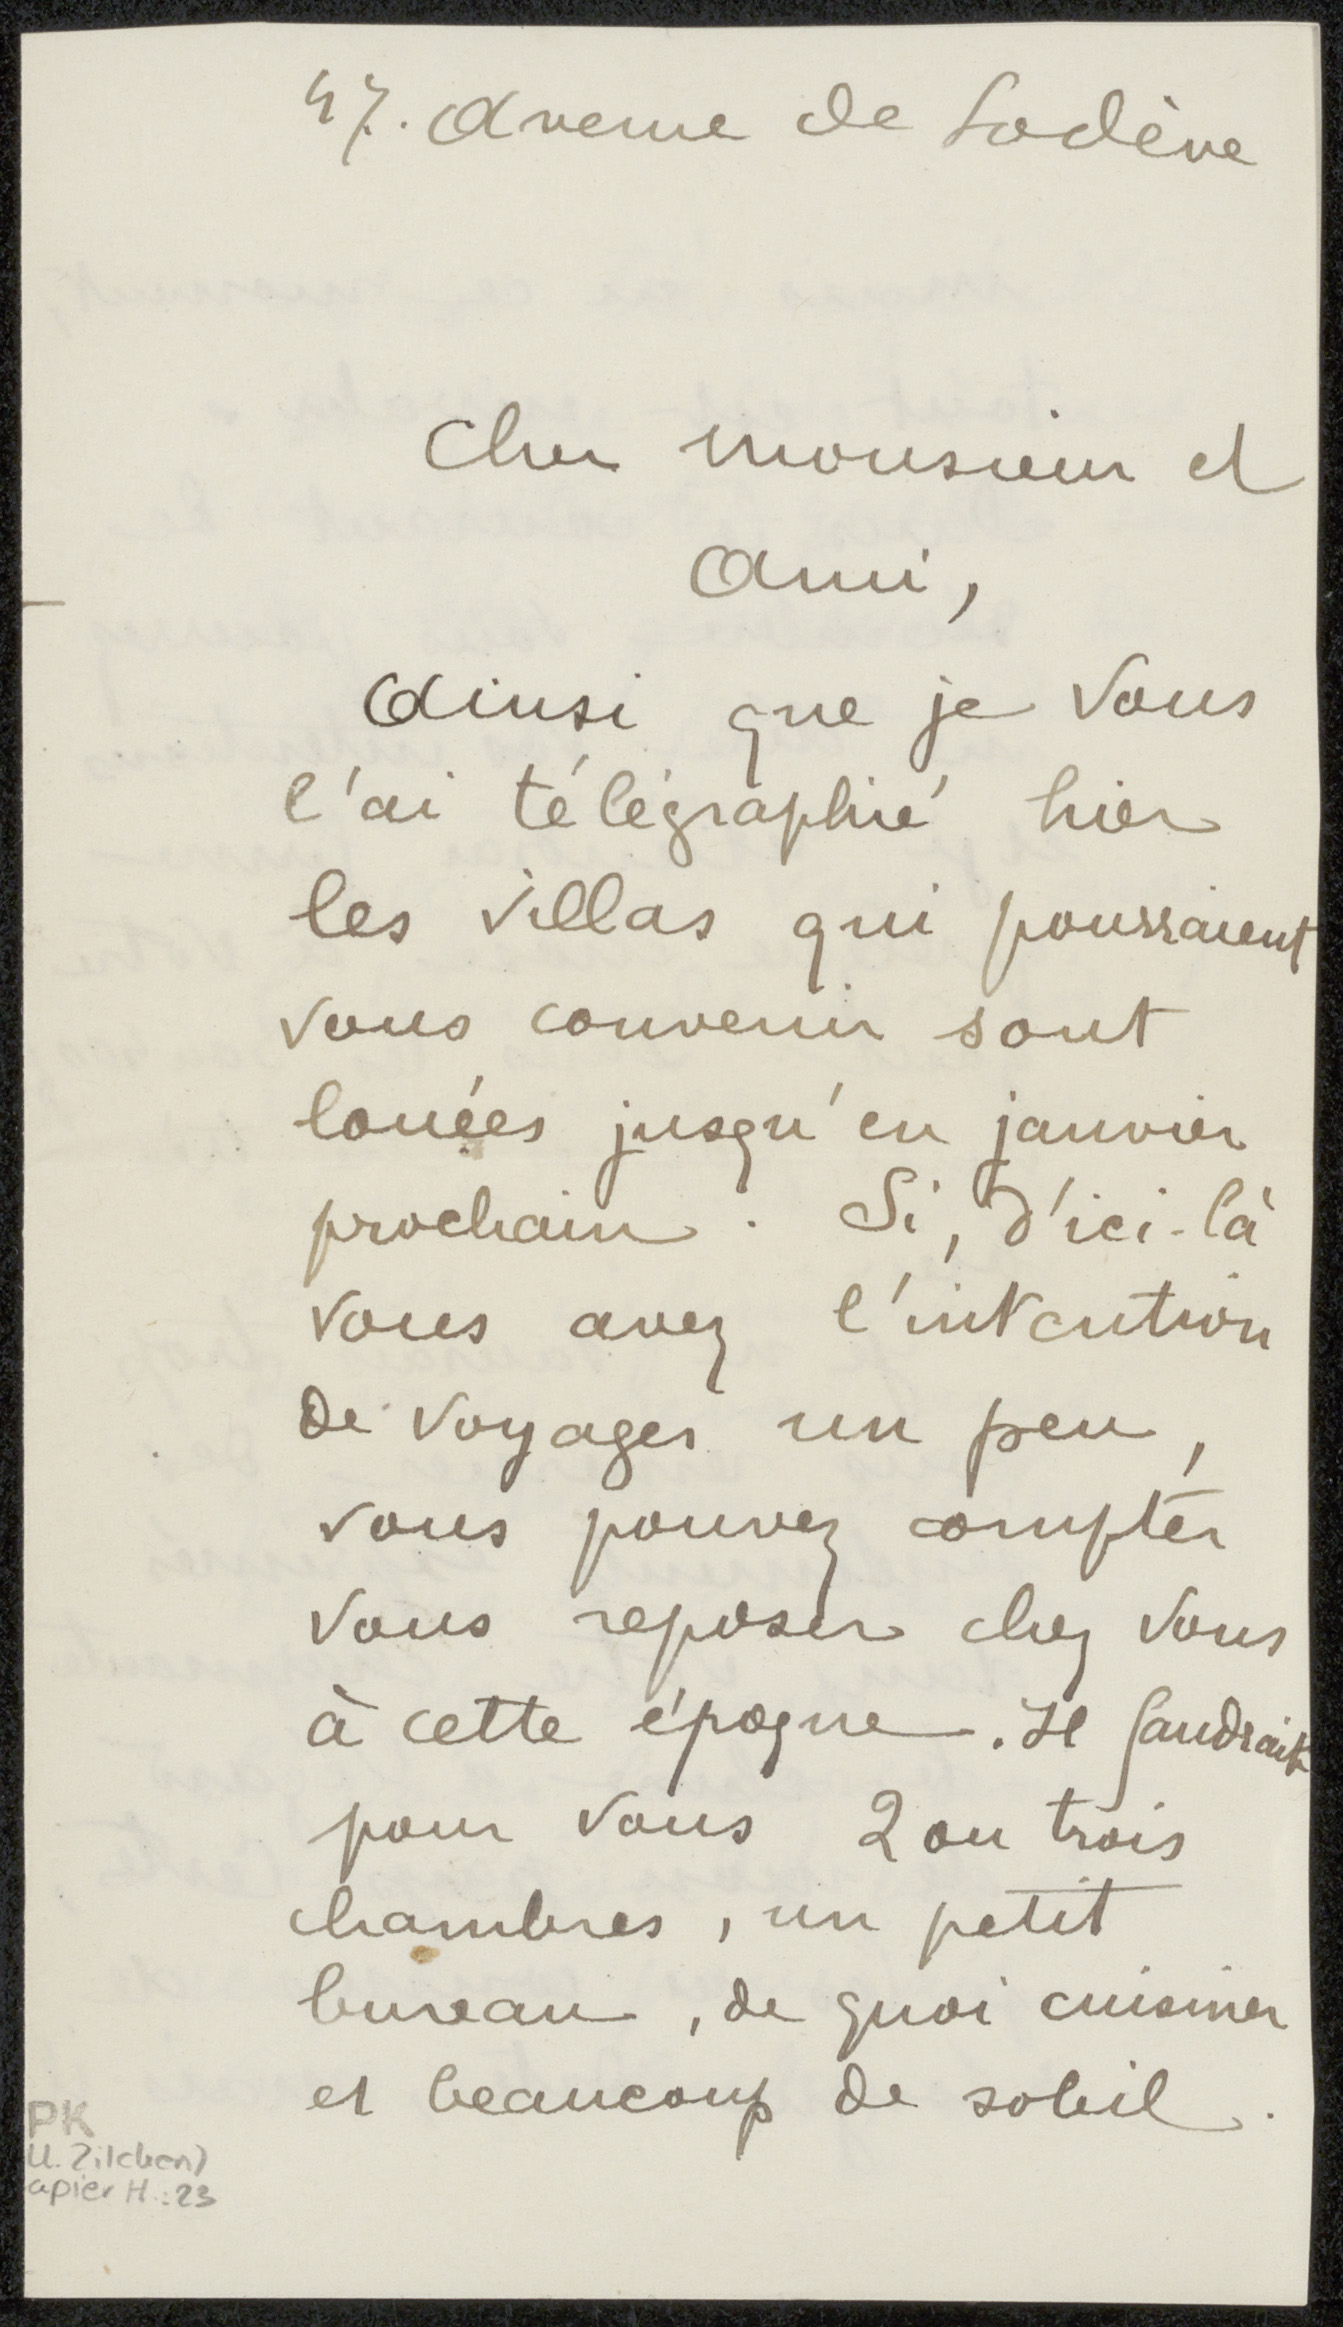 47. Avenue de Lodève
Cher Monsieur et
Ami,
Ainsi que je vous
l'ai télégraphié hier
les villas qui pourraient
vous convenir sont
louées jusqu'en janvier
prochain. Si, d'ici-là
vous avez l'intention
de voyager un peu,
vous pouvez compter
vous reposer chez vous
à cette époque. Il faudrait
pour vous 2 ou trois
chambres, un petit
bureau, de quoi cuisiner
et beaucoup de soleil.
PK
U. Zilcken)
apier H.:23